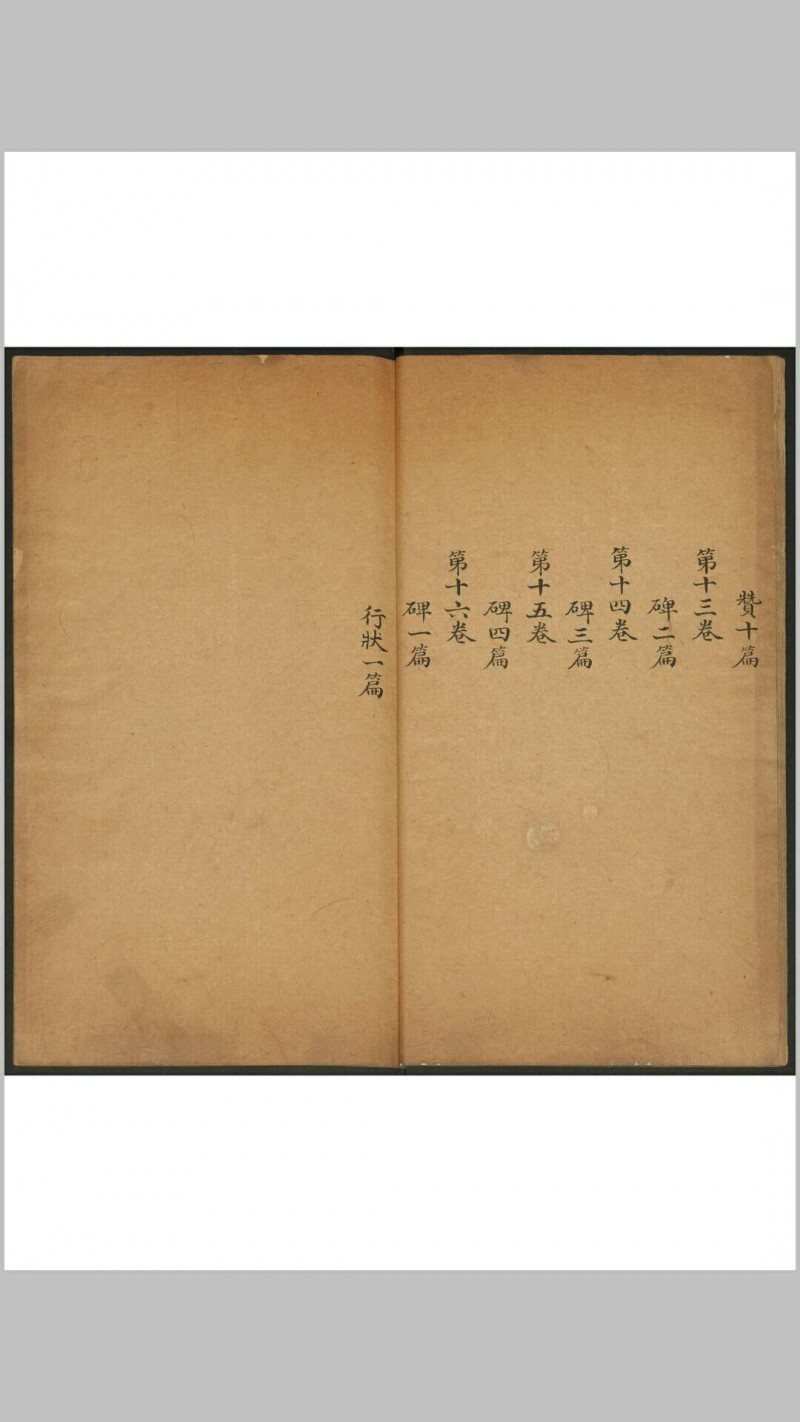 贊十篇
第十三卷
碑二篇
第十四卷
碑三篇
第十五卷
碑四篇
第十六卷
碑一篇
行狀一篇